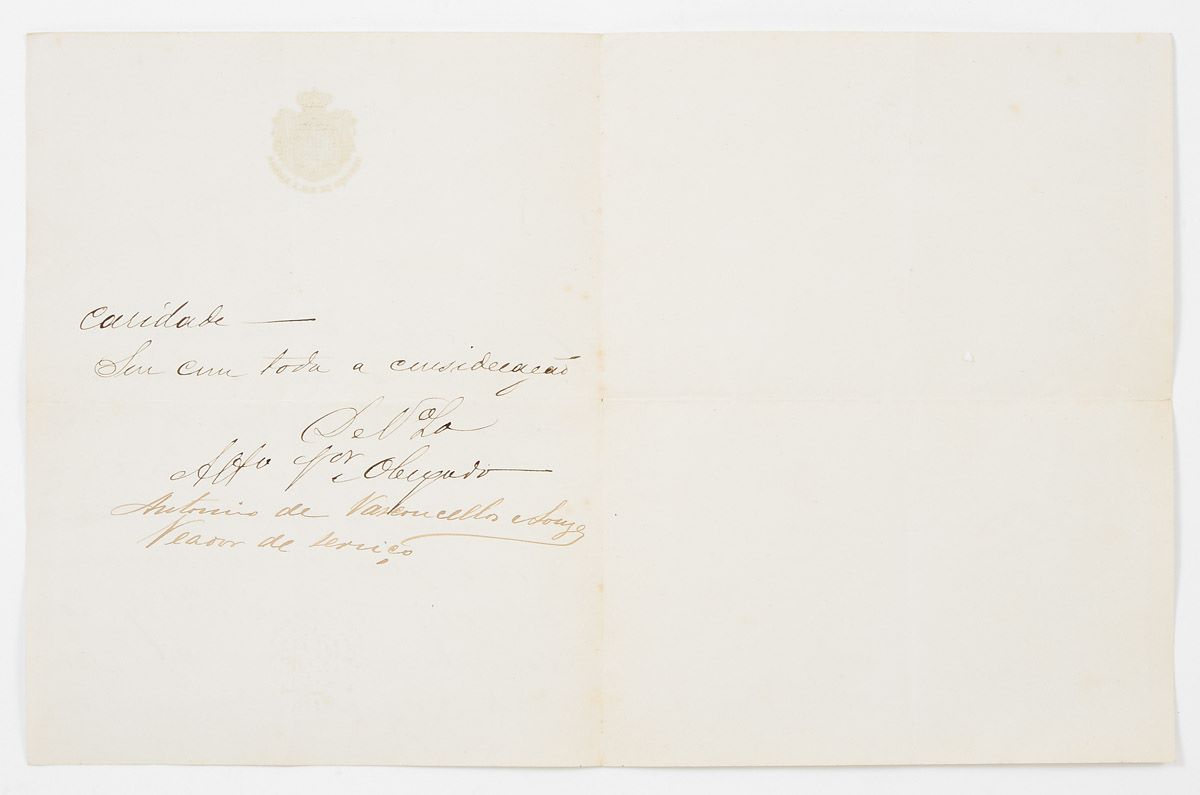 caridade —
Sou com toda a consideração
De V. Ex.ª
Att.º V.ºr e Obrigado
Antonio de Vasconcellos e Souza
Veador de serviço